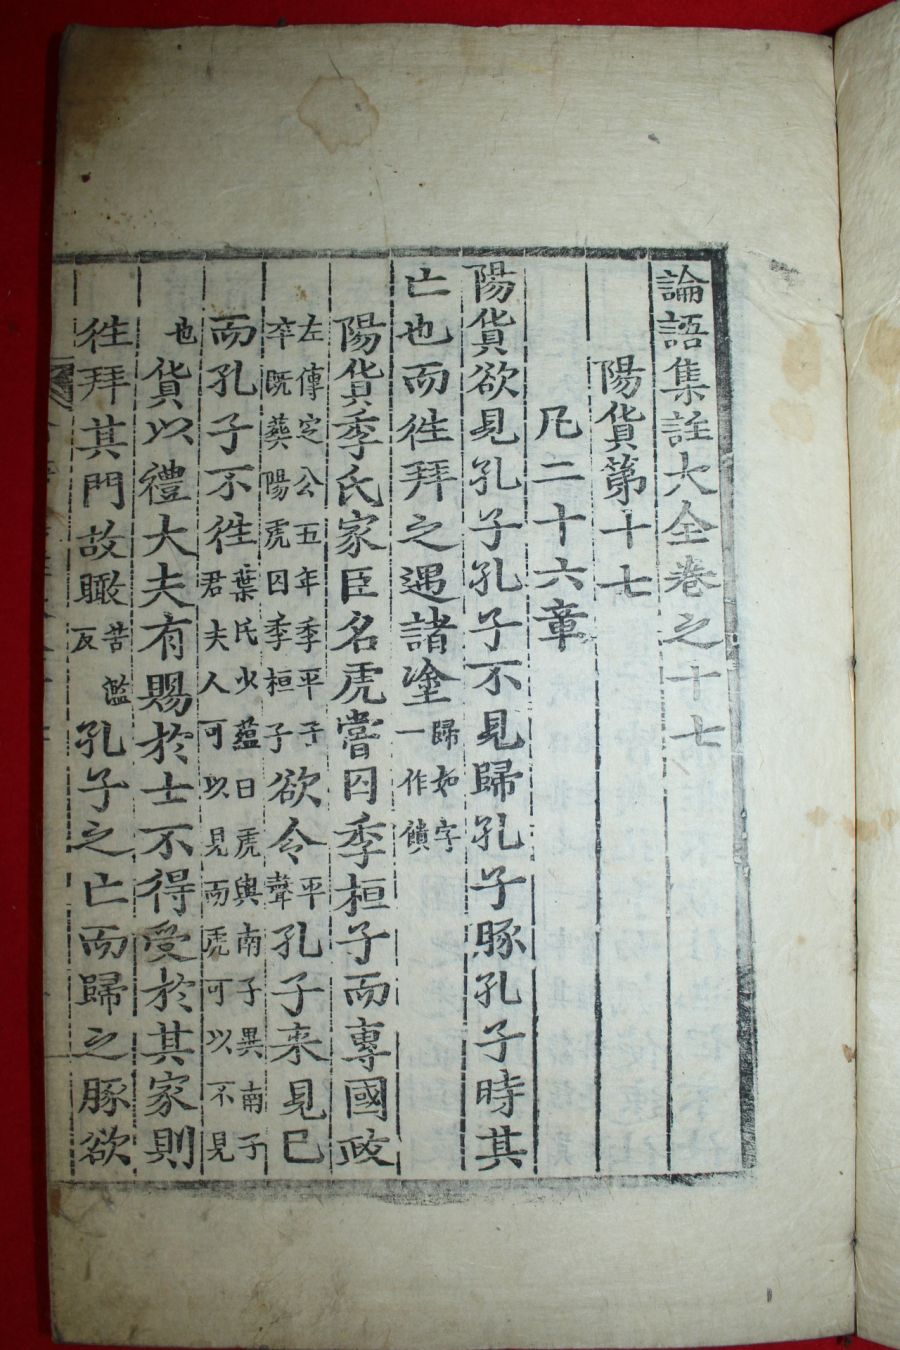 論語集註大全卷之十七
陽貨第十七
凡二十六章
陽貨欲見孔子孔子不見歸孔子豚孔子時其
亡也而徃拜之遇諸塗歸如字一作饋
陽貨季氏家臣名虎嘗囚季桓子而專國政
左傳定公五年季平子卒旣葬陽虎囚季桓子欲令平聲孔子來見己
而孔子不徃葉氏少蘊曰虎與南子異南子君夫人可以見而虎可以不見
也貨以禮大夫有賜於士不得受於其家則
徃拜其門故瞰苦濫反孔子之亡而歸之豚欲